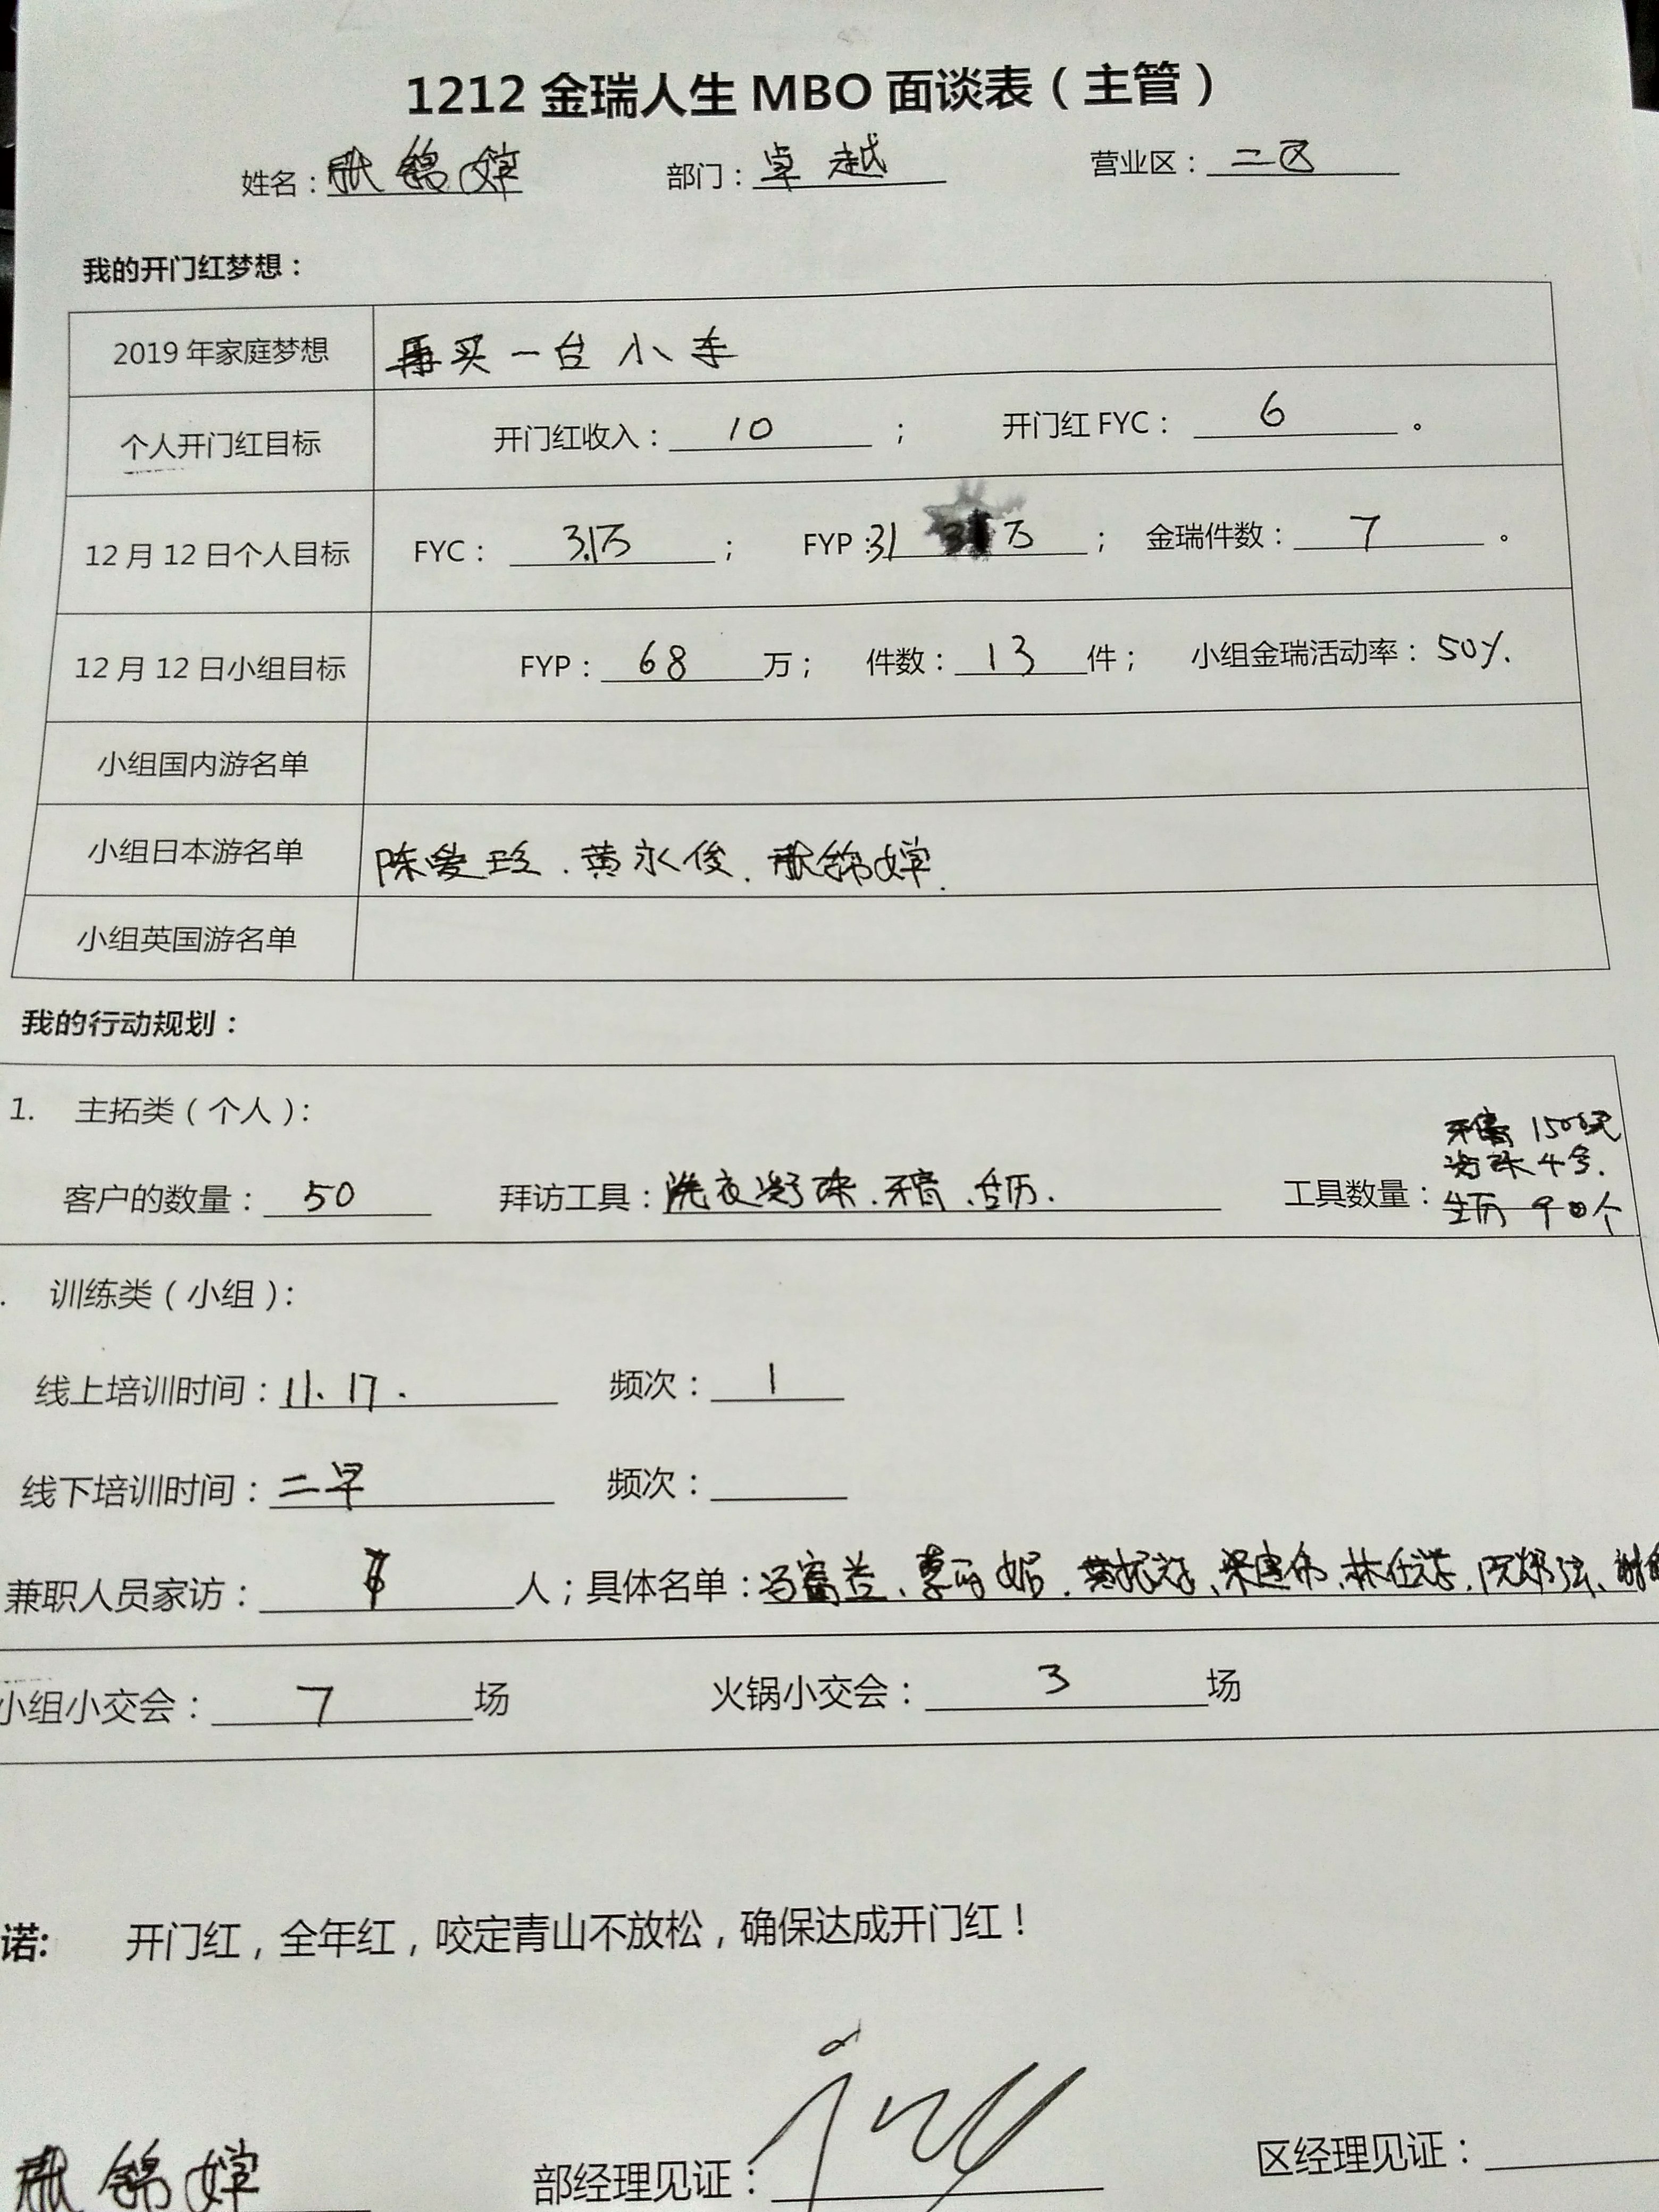 1212 金瑞人生 MBO 面谈表（主管）
姓名： 锦婵 部门：卓越 营业区：二区
我的开门红梦想：
2019 年家庭梦想 再买一台小车
个人开门红目标 开门红收入：10； 开门红 FYC：6。
12 月 12 日个人目标 FYC：3.1万； FYP：31 万； 金瑞件数：7。
12 月 12 日小组目标 FYP：68万； 件数：13件； 小组金瑞活动率：50%.
小组国内游名单
小组日本游名单 陈爱玲.黄永俊. 锦婵.
小组英国游名单
我的行动规划：
1. 主拓类（个人）：
牙膏 1500
客户的数量：50 拜访工具：洗衣凝珠.牙膏.台历. 工具数量：
个
. 训练类（小组）：
线上培训时间：11.17. 频次：1
线下培训时间：二早 频次：
兼职人员家访： 人；具体名单：冯富兰、
小组小交会：7场 火锅小交会：3场
诺: 开门红，全年红，咬定青山不放松，确保达成开门红！
锦婵 部经理见证： 区经理见证：